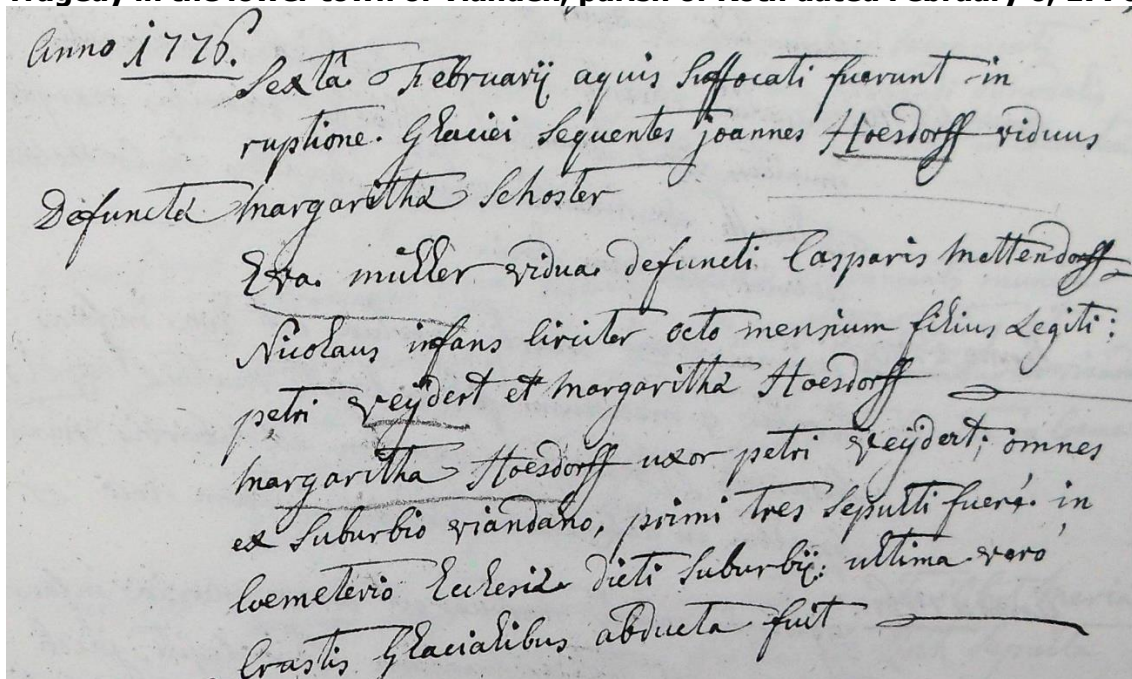 Tragedy in the lower town of Vianden, parish of Roth dated February 6, 1776
Anno 1776.
Sexta Februarij aquis suffocati fuerunt in
ruptione Glaciei sequentes joannes Hoesdorff viduus
Defunctae Margaritha Schoster
Eva müller vidua defuncti Casparis Mettendorff
Nicolaus infans Circiter octo mensium filius Legiti:
petri veijdert et Margaritha Hoesdorff
Margaritha Hoesdorff uxor petri veijdert; omnes
ex suburbio viandano, primi tres sepulti fuerē in
Coemeterio Ecclesiae dicti suburbij: ultima vero
Crastis Glacialibus abducta fuit